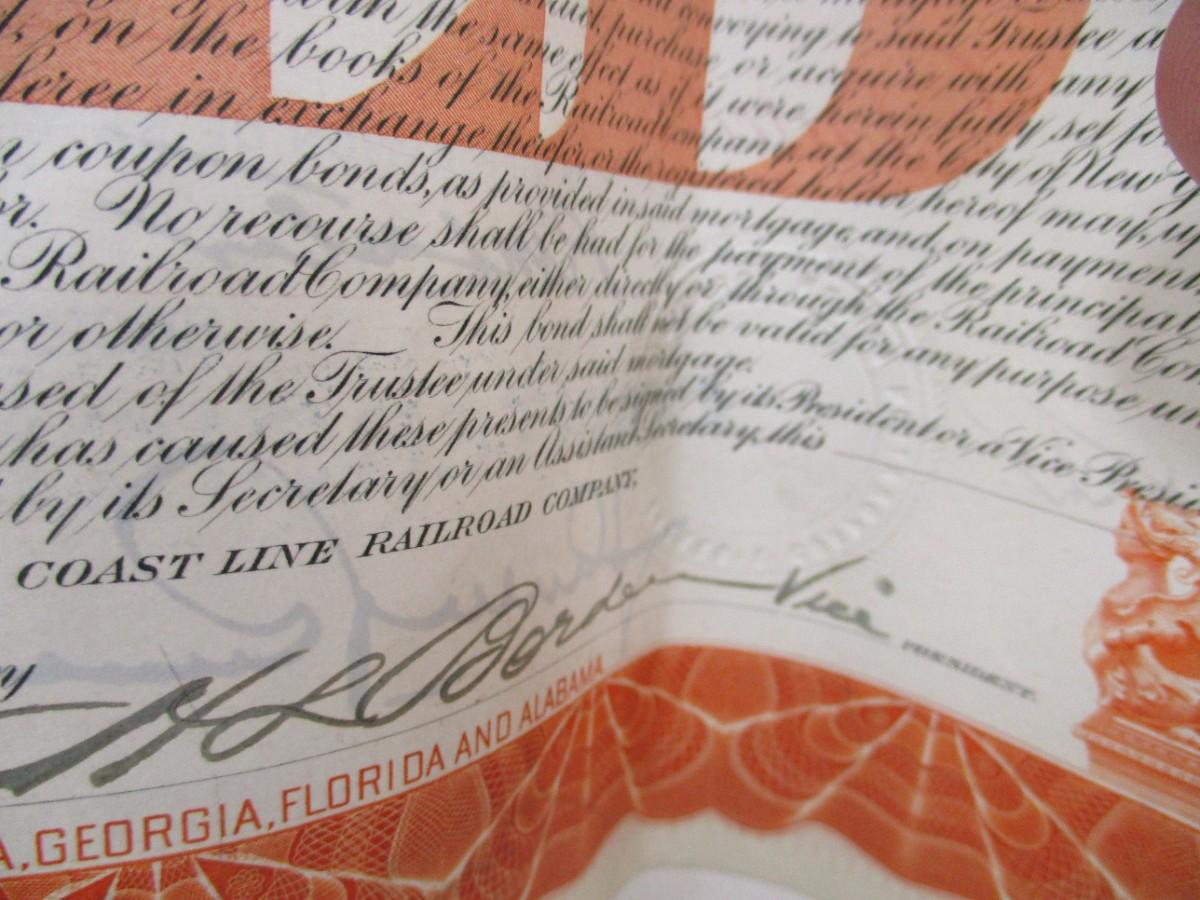 with the same effect as if it were herein fully set fo
said, purchase or acquire with any
on the books of the Railroad Company, at the City of New Y
in exchange therefor, or the registered holder hereof may, up
coupon bonds, as provided in said mortgage, and, on payment
or. No recourse shall be had for the payment of the principal
Railroad Company, either directly or through the Railroad Com
or otherwise. This bond shall not be valid for any purpose un
sed of the Trustee under said mortgage.
has caused these presents to be signed by its President or a Vice-Presid
by its Secretary or an Assistant Secretary, this
COAST LINE RAILROAD COMPANY,
y H L Borden Vice PRESIDENT.
A, GEORGIA, FLORIDA AND ALABAMA